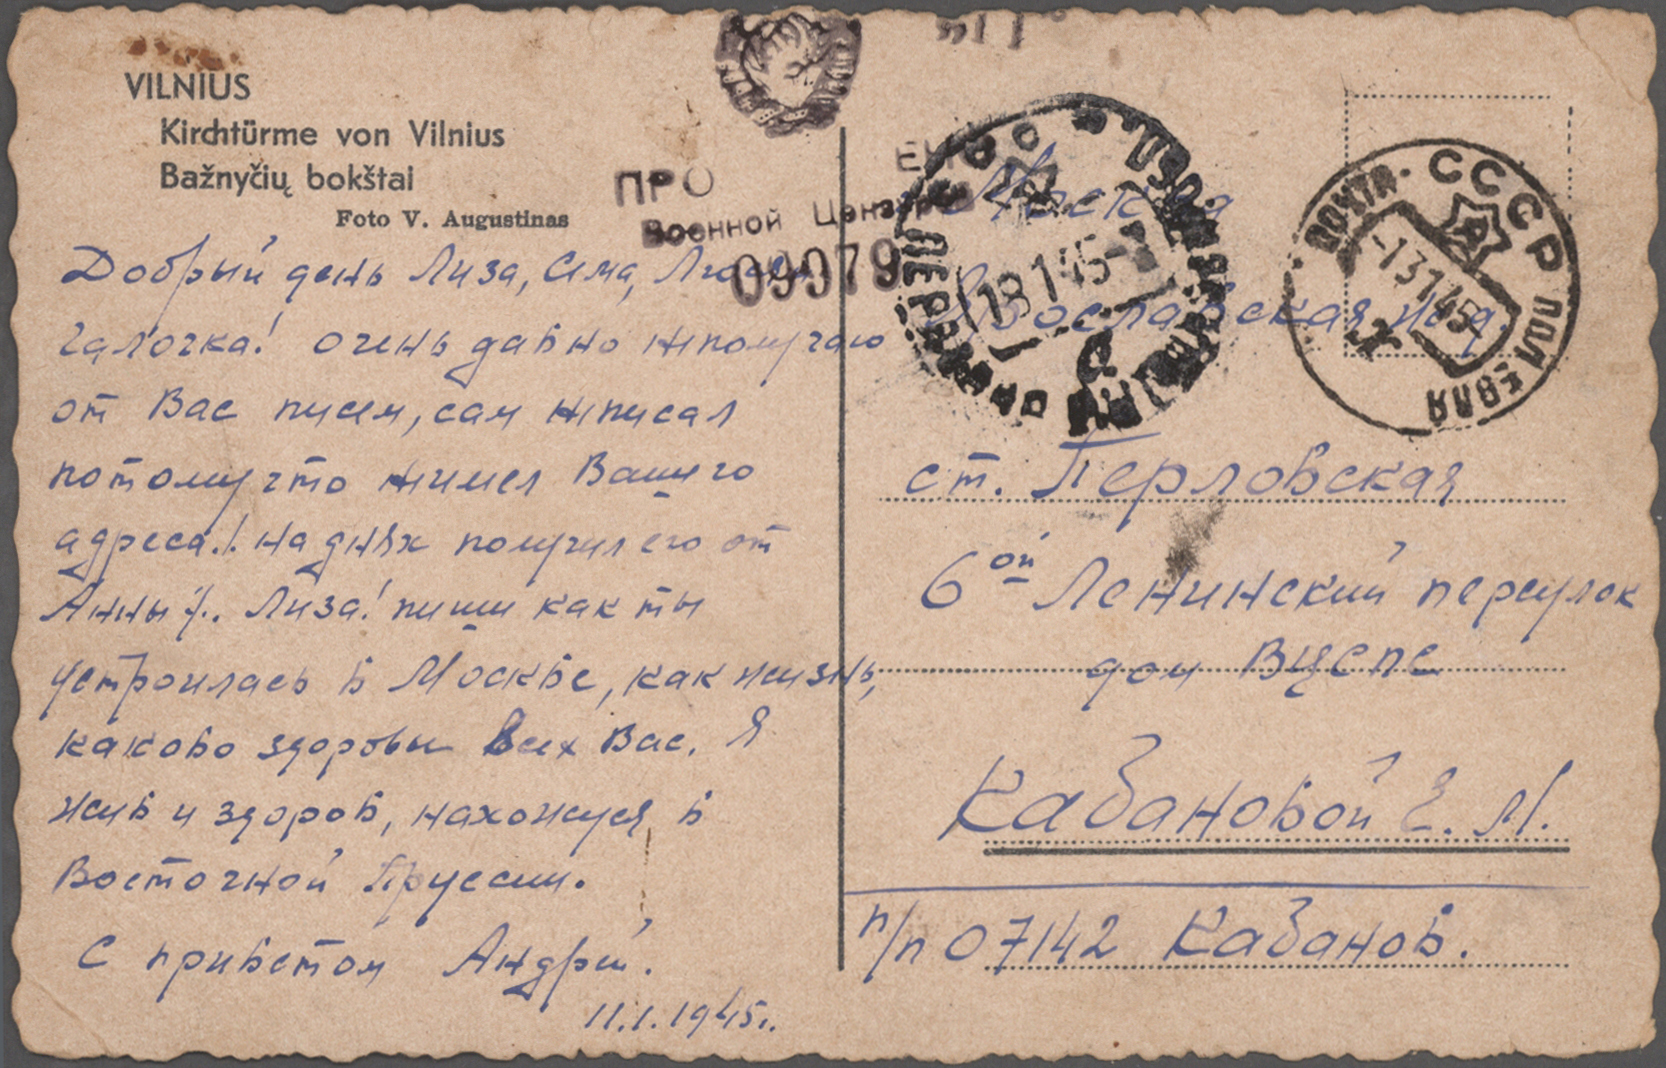 VILNIUS
Kirchtürme von Vilnius
Bažnyčių bokštai
Foto V. Augustinas
Добрый день Лиза, Сима,
Галочка! очень давно неполучаю
от Вас писем, сам неписал
потому что неимел Вашего
адреса.! На днях получил его от
Анны У. Лиза! пиши как ты
устроилась в Москве, как жизнь,
каково здоровье всех Вас. Я
жив и здоров, нахожуся в
Восточной Пруссии.
С приветом Андрей.
11.1.1945г.
ПРО ЕНО
Военной Цензурой
09979
Москва
Ярославская ж.д.
ст. Перловская
6ой Ленинский переулок
дом Вцспс
Кабановой Е. М.
п/п 07142 Кабанов.
СССР
18 1 45
ПОЧТА СССР ПОЛЕВАЯ
-1 31 1 45